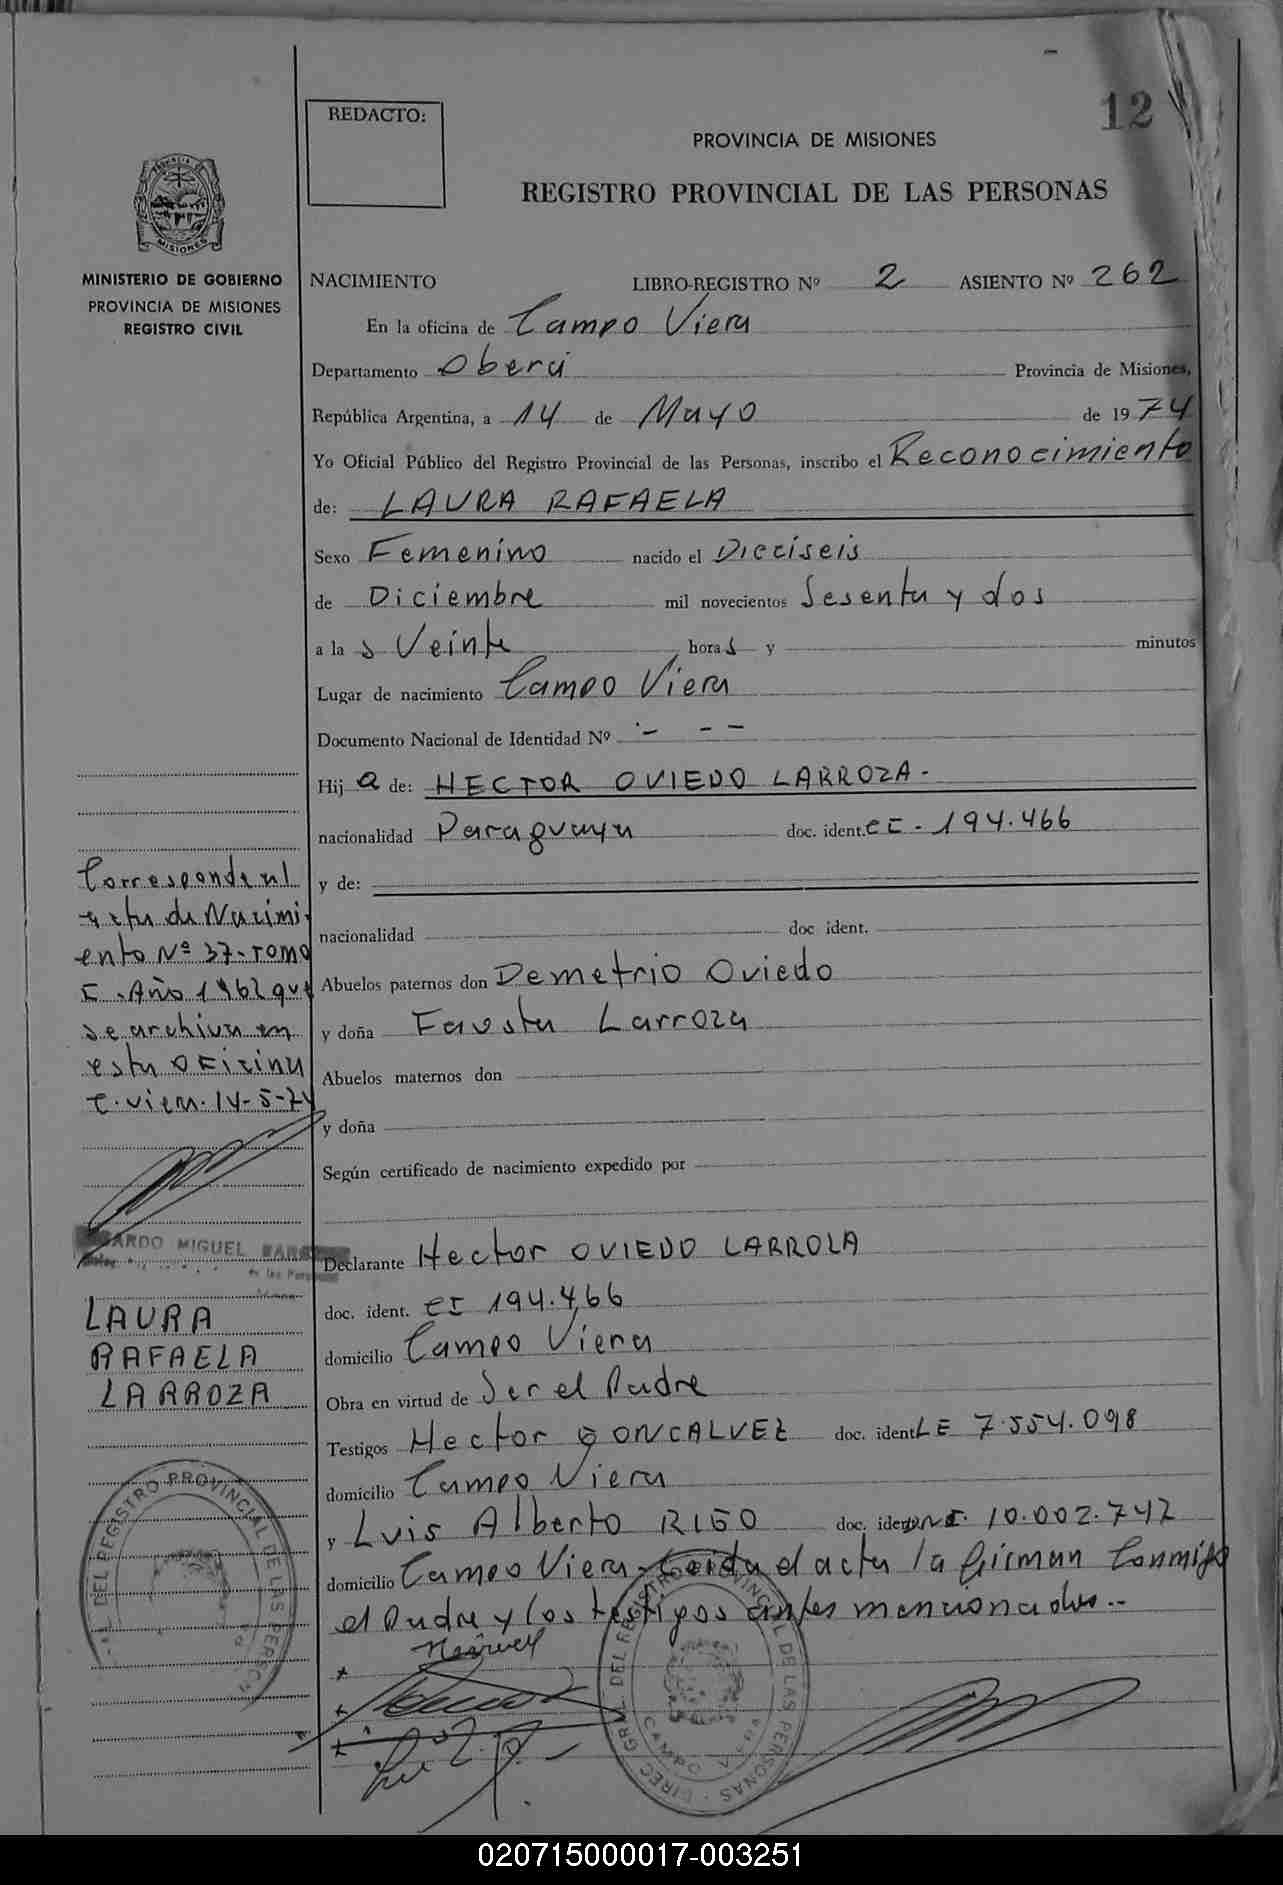 12
REDACTO:
PROVINCIA DE MISIONES
REGISTRO PROVINCIAL DE LAS PERSONAS
MISIONES
MINISTERIO DE GOBIERNO
PROVINCIA DE MISIONES
REGISTRO CIVIL
NACIMIENTO LIBRO-REGISTRO Nº 2 ASIENTO Nº 262
En la oficina de Campo Viera
Departamento Oberá Provincia de Misiones,
República Argentina, a 14 de Mayo de 1974
Yo Oficial Público del Registro Provincial de las Personas, inscribo el Reconocimiento
de: LAURA RAFAELA
Sexo Femenino nacido el Dieciseis
de Diciembre mil novecientos Sesenta y dos
a la s Veinte hora s y minutos
Lugar de nacimiento Campo Viera
Documento Nacional de Identidad Nº - - -
Hij a de: HECTOR OVIEDO LARROZA.-
nacionalidad Paraguaya doc. ident. CI - 194.466
y de:
nacionalidad doc ident.
Abuelos paternos don Demetrio Oviedo
y doña Fausta Larroza
Abuelos maternos don
y doña
Según certificado de nacimiento expedido por
Declarante Hector OVIEDO LARROZA
doc. ident. CI 194.466
domicilio Campo Viera
Obra en virtud de Ser el Padre
Testigos Hector GONCALVEZ doc. ident LE 7.554.098
domicilio Campo Viera
y Luis Alberto RIGO doc. ident DNI. 10.002.742
domicilio Campo Viera. Leida el acta la firman Conmigo
el Padre y los testigos antes mencionados.-
Corresponde al
acta de Nacimi-
ento Nº 37- Tomo
I .Año 1962 que
se archiva en
esta Oficina
C. Viera. 14-5-74
MIGUEL
LAURA
RAFAELA
LARROZA
DEL REGISTRO PROVINCIAL DE LAS PERSON
DIREC. GRAL. DEL REGISTRO PROVINCIAL DE LAS PERSONAS
CAMPO VIERA
020715000017-003251